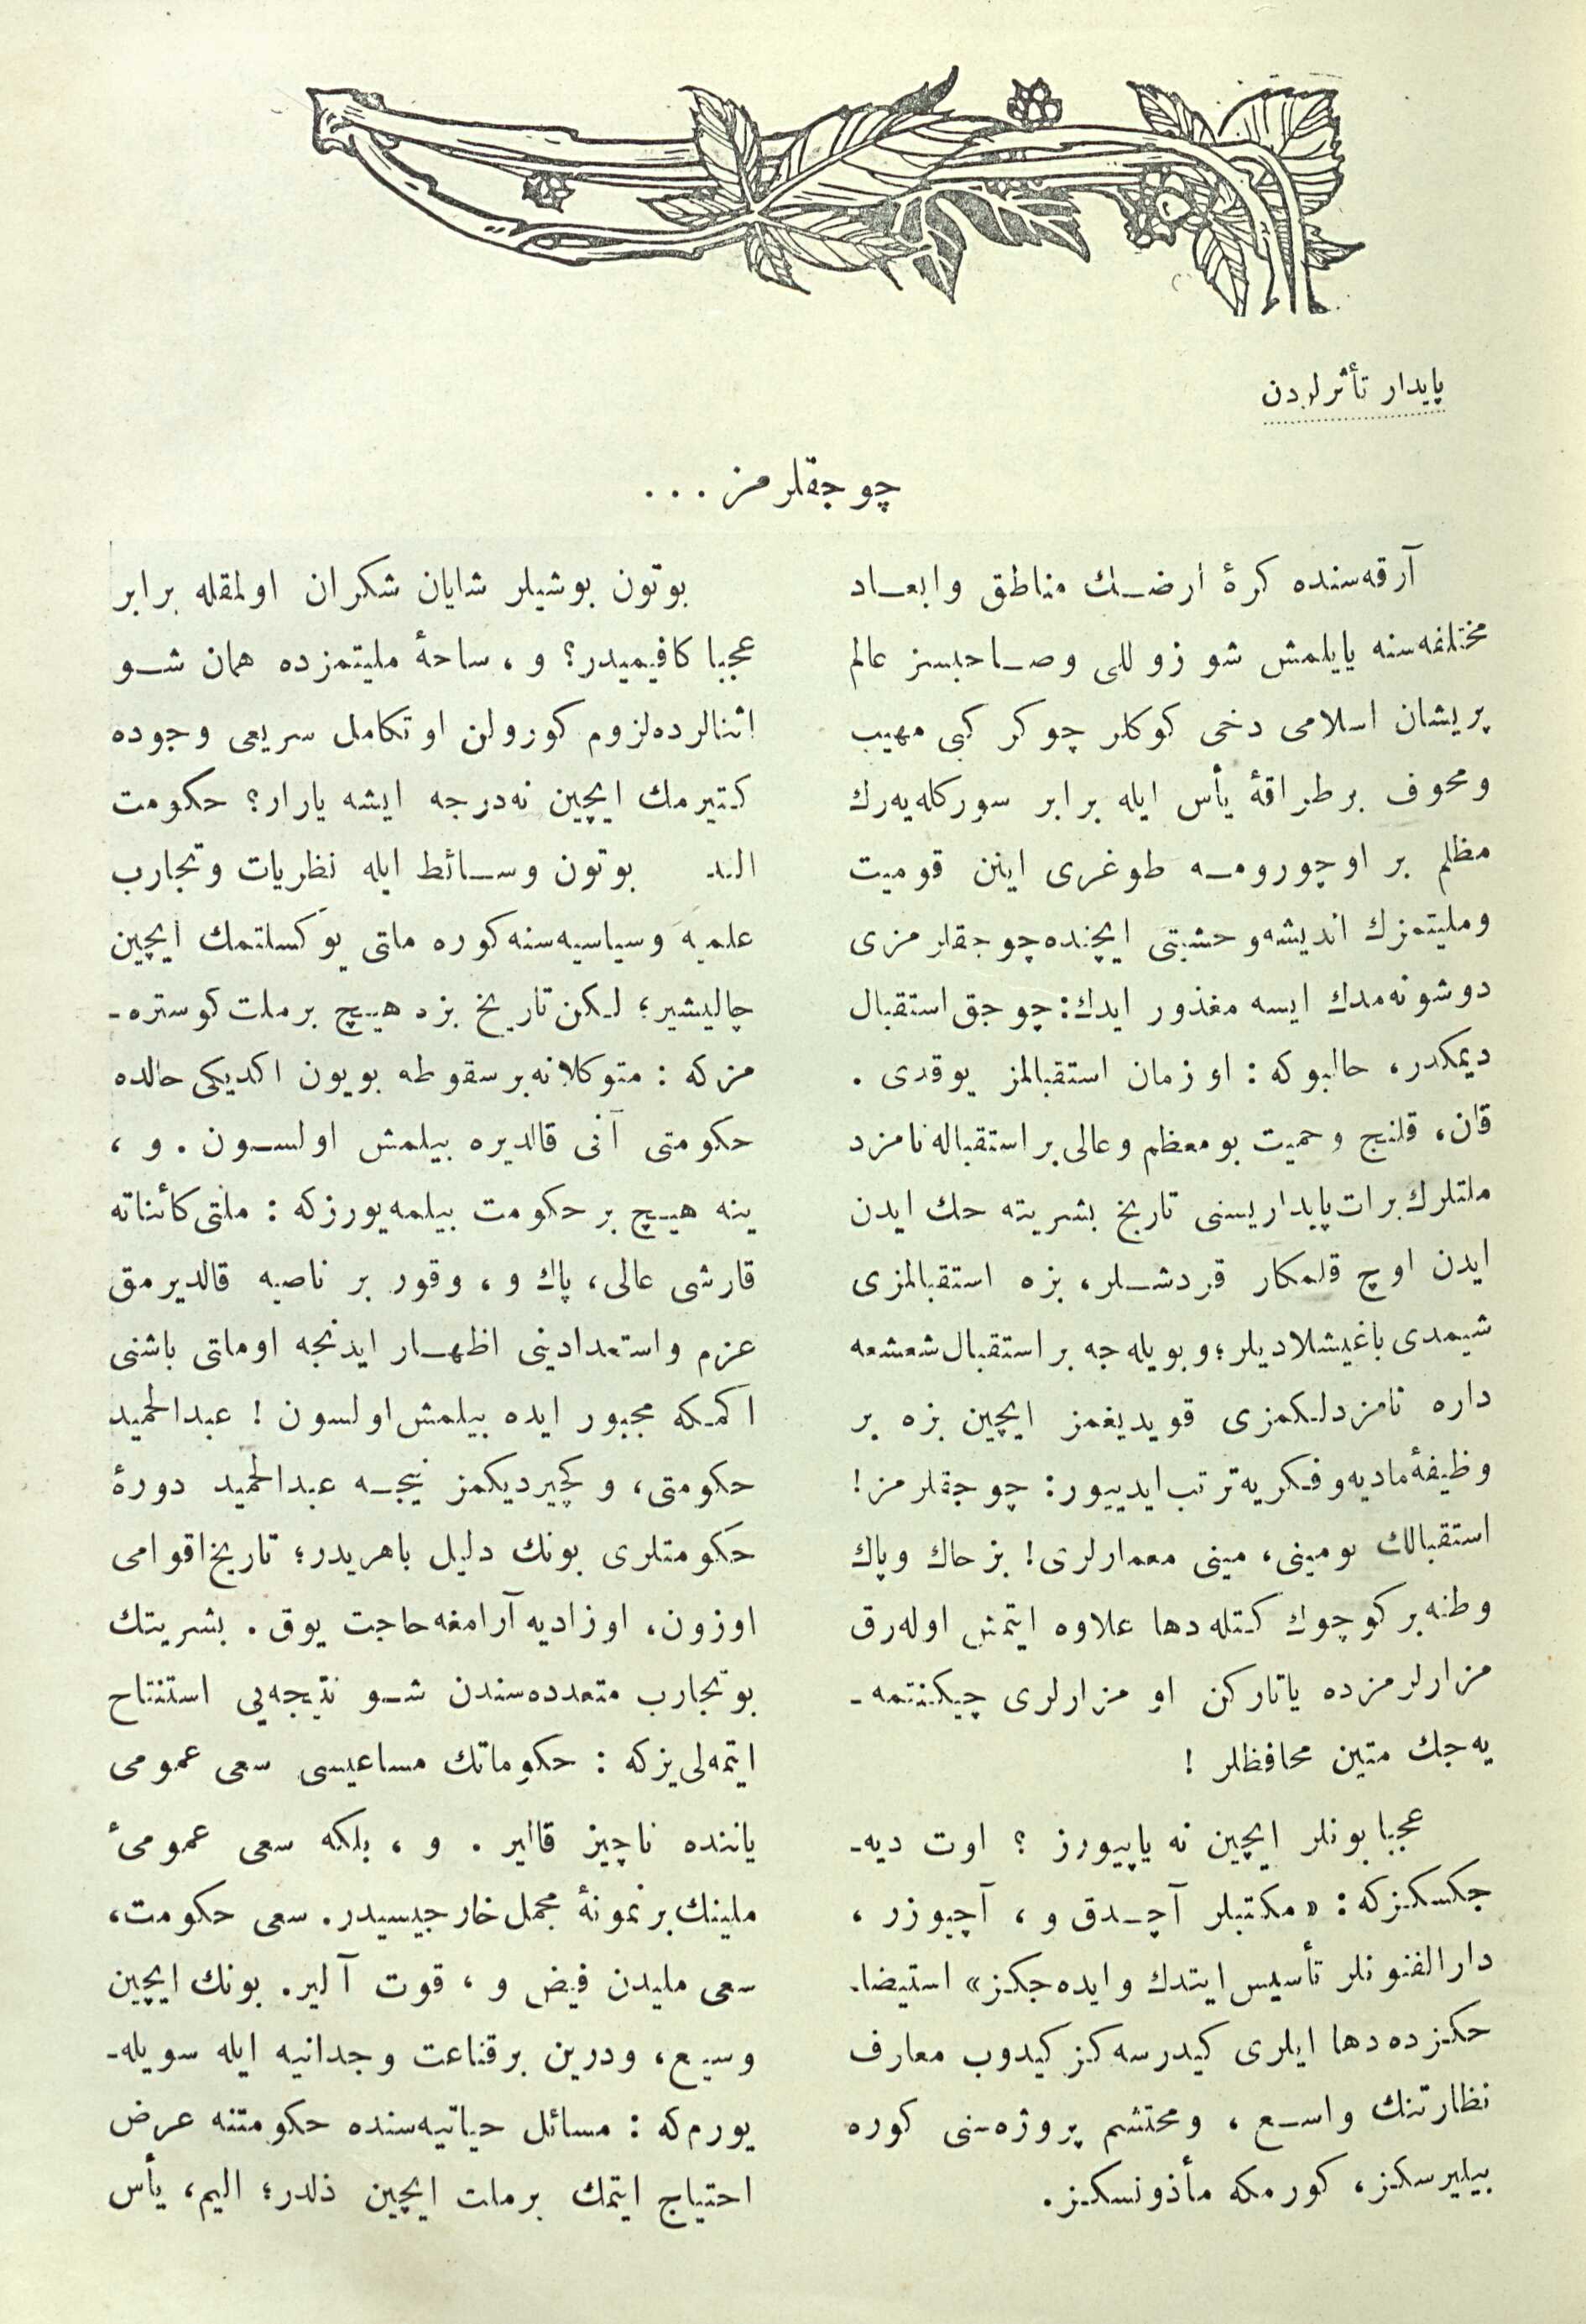 پایدار تأثرلردن
چوجقلرمز . . .
آرقه‌سنده کرهٔ ارضك مناطق وابعاد
مختلفه‌سنه یایلمش شو زوللی وصاحبسز عالم
پریشان اسلامی دخی کوکلر چوکر کبی مهیب
ومخوف برطراقهٔ یأس ایله برابر سورکله‌یه‌رك
مظلم بر اوچورومه طوغری اینن قومیت
وملیتمزك اندیشه‌وحشیتی ایچنده چوجقلرمزی
دوشونه‌مدك ایسه معذور ایدك: چوجق استقبال
دیمکدر، حالبوکه : او زمان استقبالمز یوقدی .
قان، قلنج وحمیت بومعظم وعالی براستقباله نامزد
ملتلرك برات پایداریسنی تاریخ بشریته حك ایدن
ایدن اوچ قلمکار قردشلر، بزه استقبالمزی
شیمدی باغیشلادیلر؛ وبویله‌جه براستقبال شعشعه
داره نامزدلکمزی قویدیغمز ایچین بزه بر
وظیفهٔ مادیه‌وفکریه ترتب ایدییور: چوجقلرمز!
استقبالك بومینی، مینی معمارلری! بزحاك وپاك
وطنه برکوچوك کتله دها علاوه ایتمش اوله‌رق
مزارلرمزده یاتارکن او مزارلری چیکنتمه-
یه‌جك متین محافظلر !
عجبا بونلر ایچین نه یاپییورز ؟ اوت دیه-
جکسکزکه: «مکتبلر آچدق و ، آچیوزر ،
دارالفنونلر تأسیس ایتدك وایده‌جکز» استیضا-
حکزده دها ایلری کیدرسه‌کز کیدوب معارف
نظارتنك واسع ، ومحتشم پروژه‌سنی کوره
بیلیرسکز، کورمکه مأذونسکز.
بوتون بوشیلر شایان شکران اولمقله برابر
عجبا کافیمیدر؟ و، ساحهٔ ملیتمزده همان شو
اثنالرده‌لزوم کورولن اوتکامل سریعی وجوده
کتیرمك ایچین نه‌درجه ایشه یارار؟ حکومت
النـد بوتون وسائط ایله نظریات وتجارب
علمیه وسیاسیه‌سنه‌کوره ملتی یوکسلتمك ایچین
چالیشیر؛ لکن تاریخ بزه هیچ برملت کوستره-
مزکه : متوکلانه برسقوطه بویون اکدیکی حالده
حکومتی آنی قالدیره بیلمش اولسون . و ،
ینه هیچ برحکومت بیلمه‌یورزکه : ملتی کائناته
قارشی عالی، پاك و، وقور بر ناصیه قالدیرمق
عزم واستعدادینی اظهار ایدنجه اوملتی باشنی
اکمکه مجبور ایده بیلمش اولسون ! عبدالحمید
حکومتی، و کچیردیکمز نیجه عبدالحمید دورهٔ
حکومتلری بونك دلیل باهریدر؛ تاریخ اقوامی
اوزون، اوزادیه آرامغه حاجت یوق. بشریتك
بوتجارب متعدده‌سندن شو نتیجه‌یی استنتاح
ایتمه‌لی‌یزکه : حکوماتك مساعیسی سعی عمومی
یاننده ناچیز قالیر . و ، بلکه سعی عمومیٔ
ملینك برنمونهٔ مجمل خارجیسیدر. سعی حکومت،
سعی ملیدن فیض و، قوت آلیر. بونك ایچین
وسیع، ودرین برقناعت وجدانیه ایله سویله-
یورم‌که : مسائل حیاتیه‌سنده حکومتنه عرض
احتیاج ایتمك برملت ایچین ذلدر؛ الیم، یأس